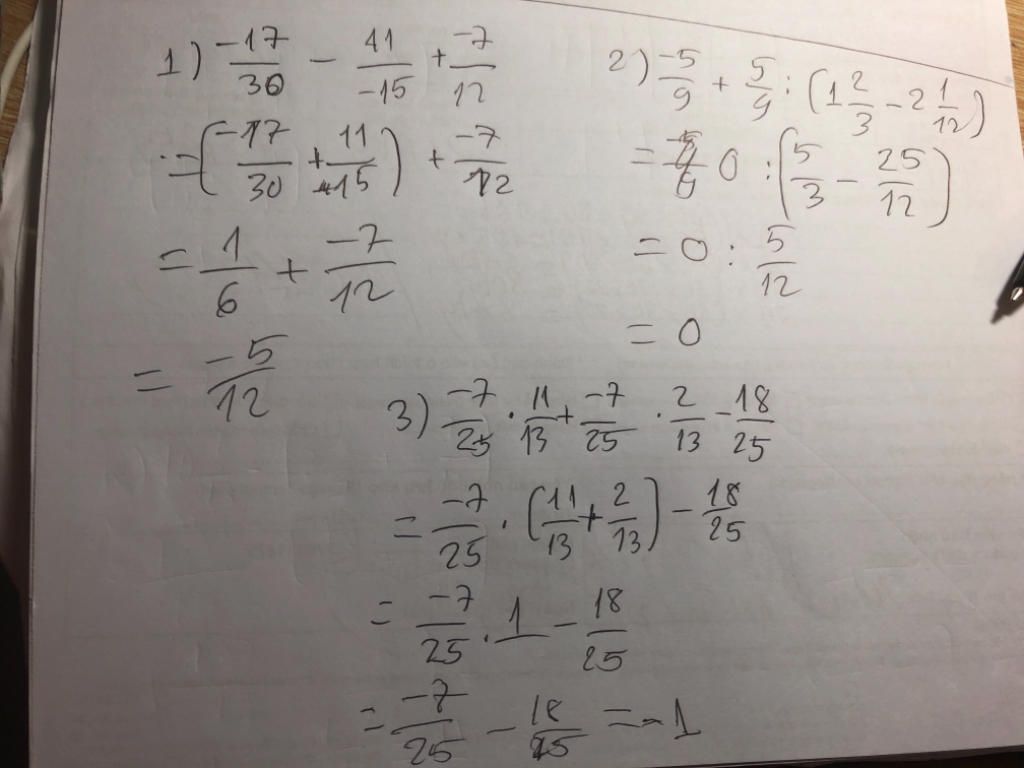 1) -17/30 - 11/-15 + -7/12
= (-17/30 + 11/15) + -7/12
= 1/6 + -7/12
= -5/12
2) -5/9 + 5/9 : (1 2/3 - 2 1/12)
= 0 : (5/3 - 25/12)
= 0 : 5/12
= 0
3) -7/25 · 11/13 + -7/25 · 2/13 - 18/25
= -7/25 · (11/13 + 2/13) - 18/25
= -7/25 · 1 - 18/25
= -7/25 - 18/25 = -1